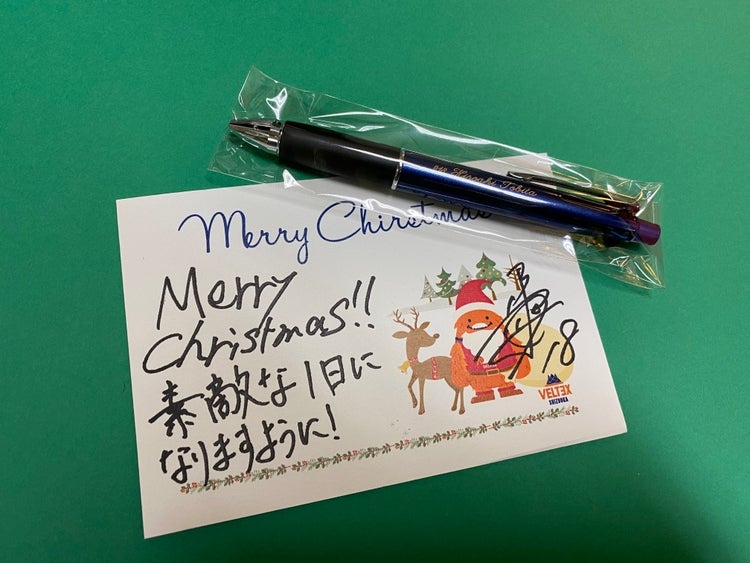 #18 Masaki Tobita
Merry Chirstmas
Merry
christmas!!
素敵な1日に
なりますように!
18
VELTEX
SHIZUOKA